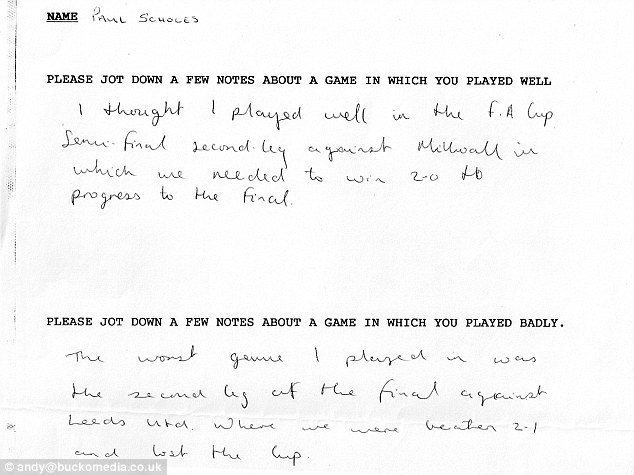 NAME PAUL SCHOLES
PLEASE JOT DOWN A FEW NOTES ABOUT A GAME IN WHICH YOU PLAYED WELL
I thought I played well in the F.A Cup
Semi-final second-leg against Millwall in
which we needed to win 2-0 to
progress to the final.
PLEASE JOT DOWN A FEW NOTES ABOUT A GAME IN WHICH YOU PLAYED BADLY.
The worst game I played in was
the second leg of the final against
Leeds Utd. Where we were beaten 2-1
and lost the Cup.
© andy@buckomedia.co.uk